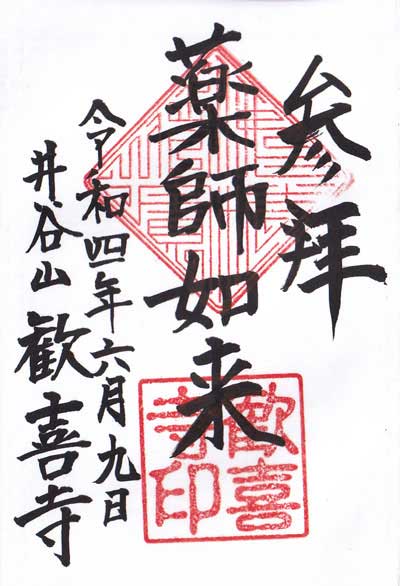 参拜
薬師如来
令和四年六月九日
井谷山 歓喜寺
歓喜
寺印